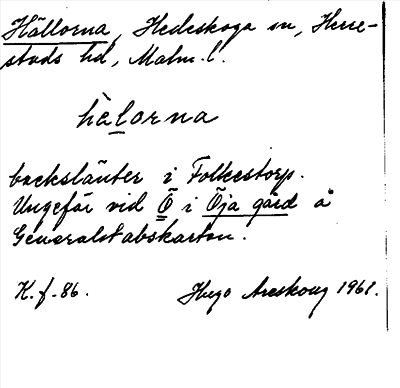 Hällorna, Hedeskoga sn, Herre-
stads hd, Malm. l.
hèlorna
backslänter i Folkestorp.
Ungefär vid Ö i Öja gård å
Generalstabskartan.
K. f. 86.
Hugo Areskoug 1961.